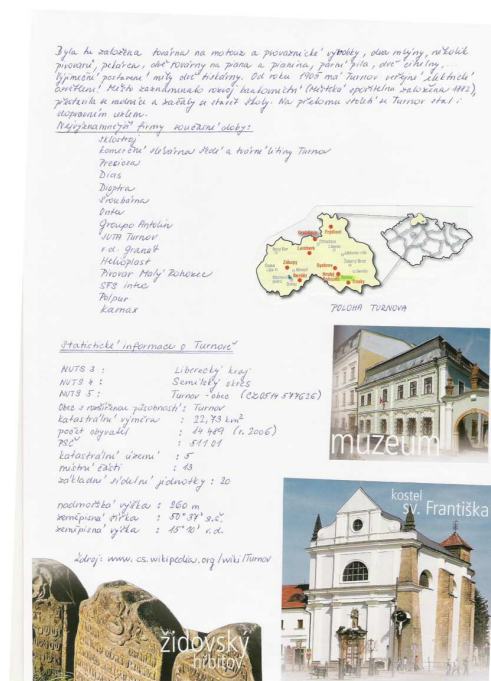 Byla tu založena továrna na motouz a provaznické výrobky, dva mlýny, několik
pivovarů, pekáren, dvě továrny na piana a pianina, parní pila, dvě cihelny,...
Výjimečné postavení měly dvě tiskárny. Od roku 1905 má Turnov veřejné elektrické
osvětlení. Město zaznamenalo rozvoj bankovnictví (Městská spořitelna založena 1872),
přestavila se radnice a začaly se stavět školy. Na přelomu století se Turnov stal i
dopravním uzlem.
Nejvýznamnější firmy současné doby:
Sklostroj
Komerční slévárna šedé a tvárné litiny Turnov
Preciosa
Dias
Dioptra
Šroubárna
Onta
Grupo Antolin
JUTA Turnov
v.d. Granát
Helioplast
Pivovar Malý Rohozec
SFS intec
Polpur
Kamax
POLOHA TURNOVA
Statistické informace o Turnově
NUTS 3 : Liberecký kraj
NUTS 4 : Semilský okres
NUTS 5 : Turnov - obec (CZ0514 577626)
Obec s rozšířenou působností : Turnov
katastrální výměra : 22,73 km²
počet obyvatel : 14 489 (r. 2006)
PSČ : 511 01
katastrální území : 5
místní části : 13
základní sídelní jednotky : 20
nadmořská výška : 260 m
zeměpisná šířka : 50° 37' s.š.
zeměpisná výška : 15° 10' v.d.
Zdroj: www.cs.wikipedia.org/wiki/Turnov
muzeum
kostel
sv. Františka
židovský
hřbitov